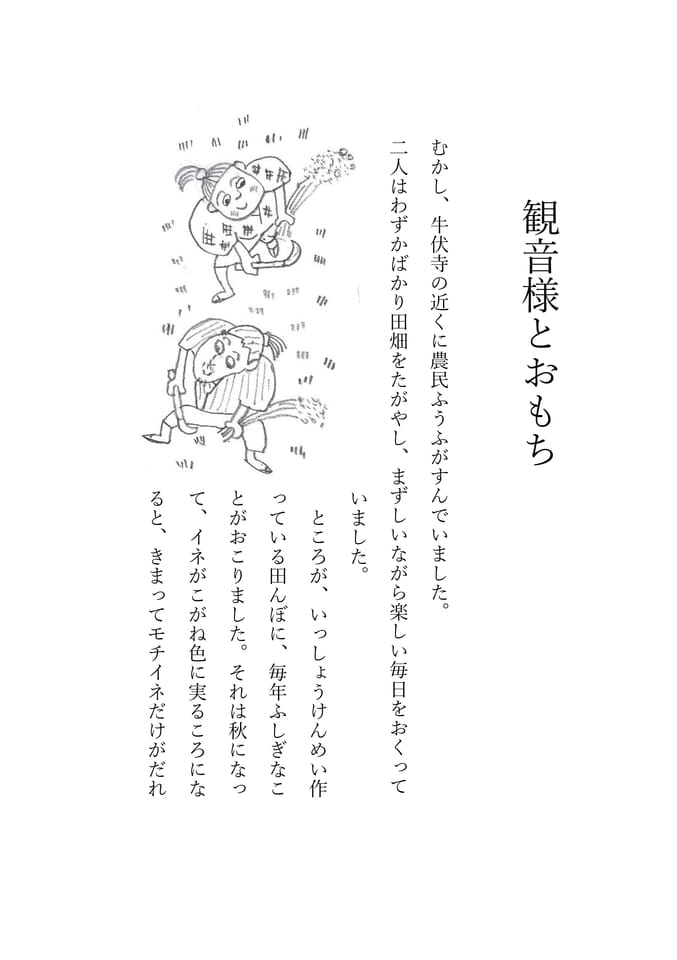 観音様とおもち
むかし、牛伏寺の近くに農民ふうふがすんでいました。
二人はわずかばかり田畑をたがやし、まずしいながら楽しい毎日をおくって
いました。
ところが、いっしょうけんめい作
っている田んぼに、毎年ふしぎなこ
とがおこりました。それは秋になっ
て、イネがこがね色に実るころにな
ると、きまってモチイネだけがだれ